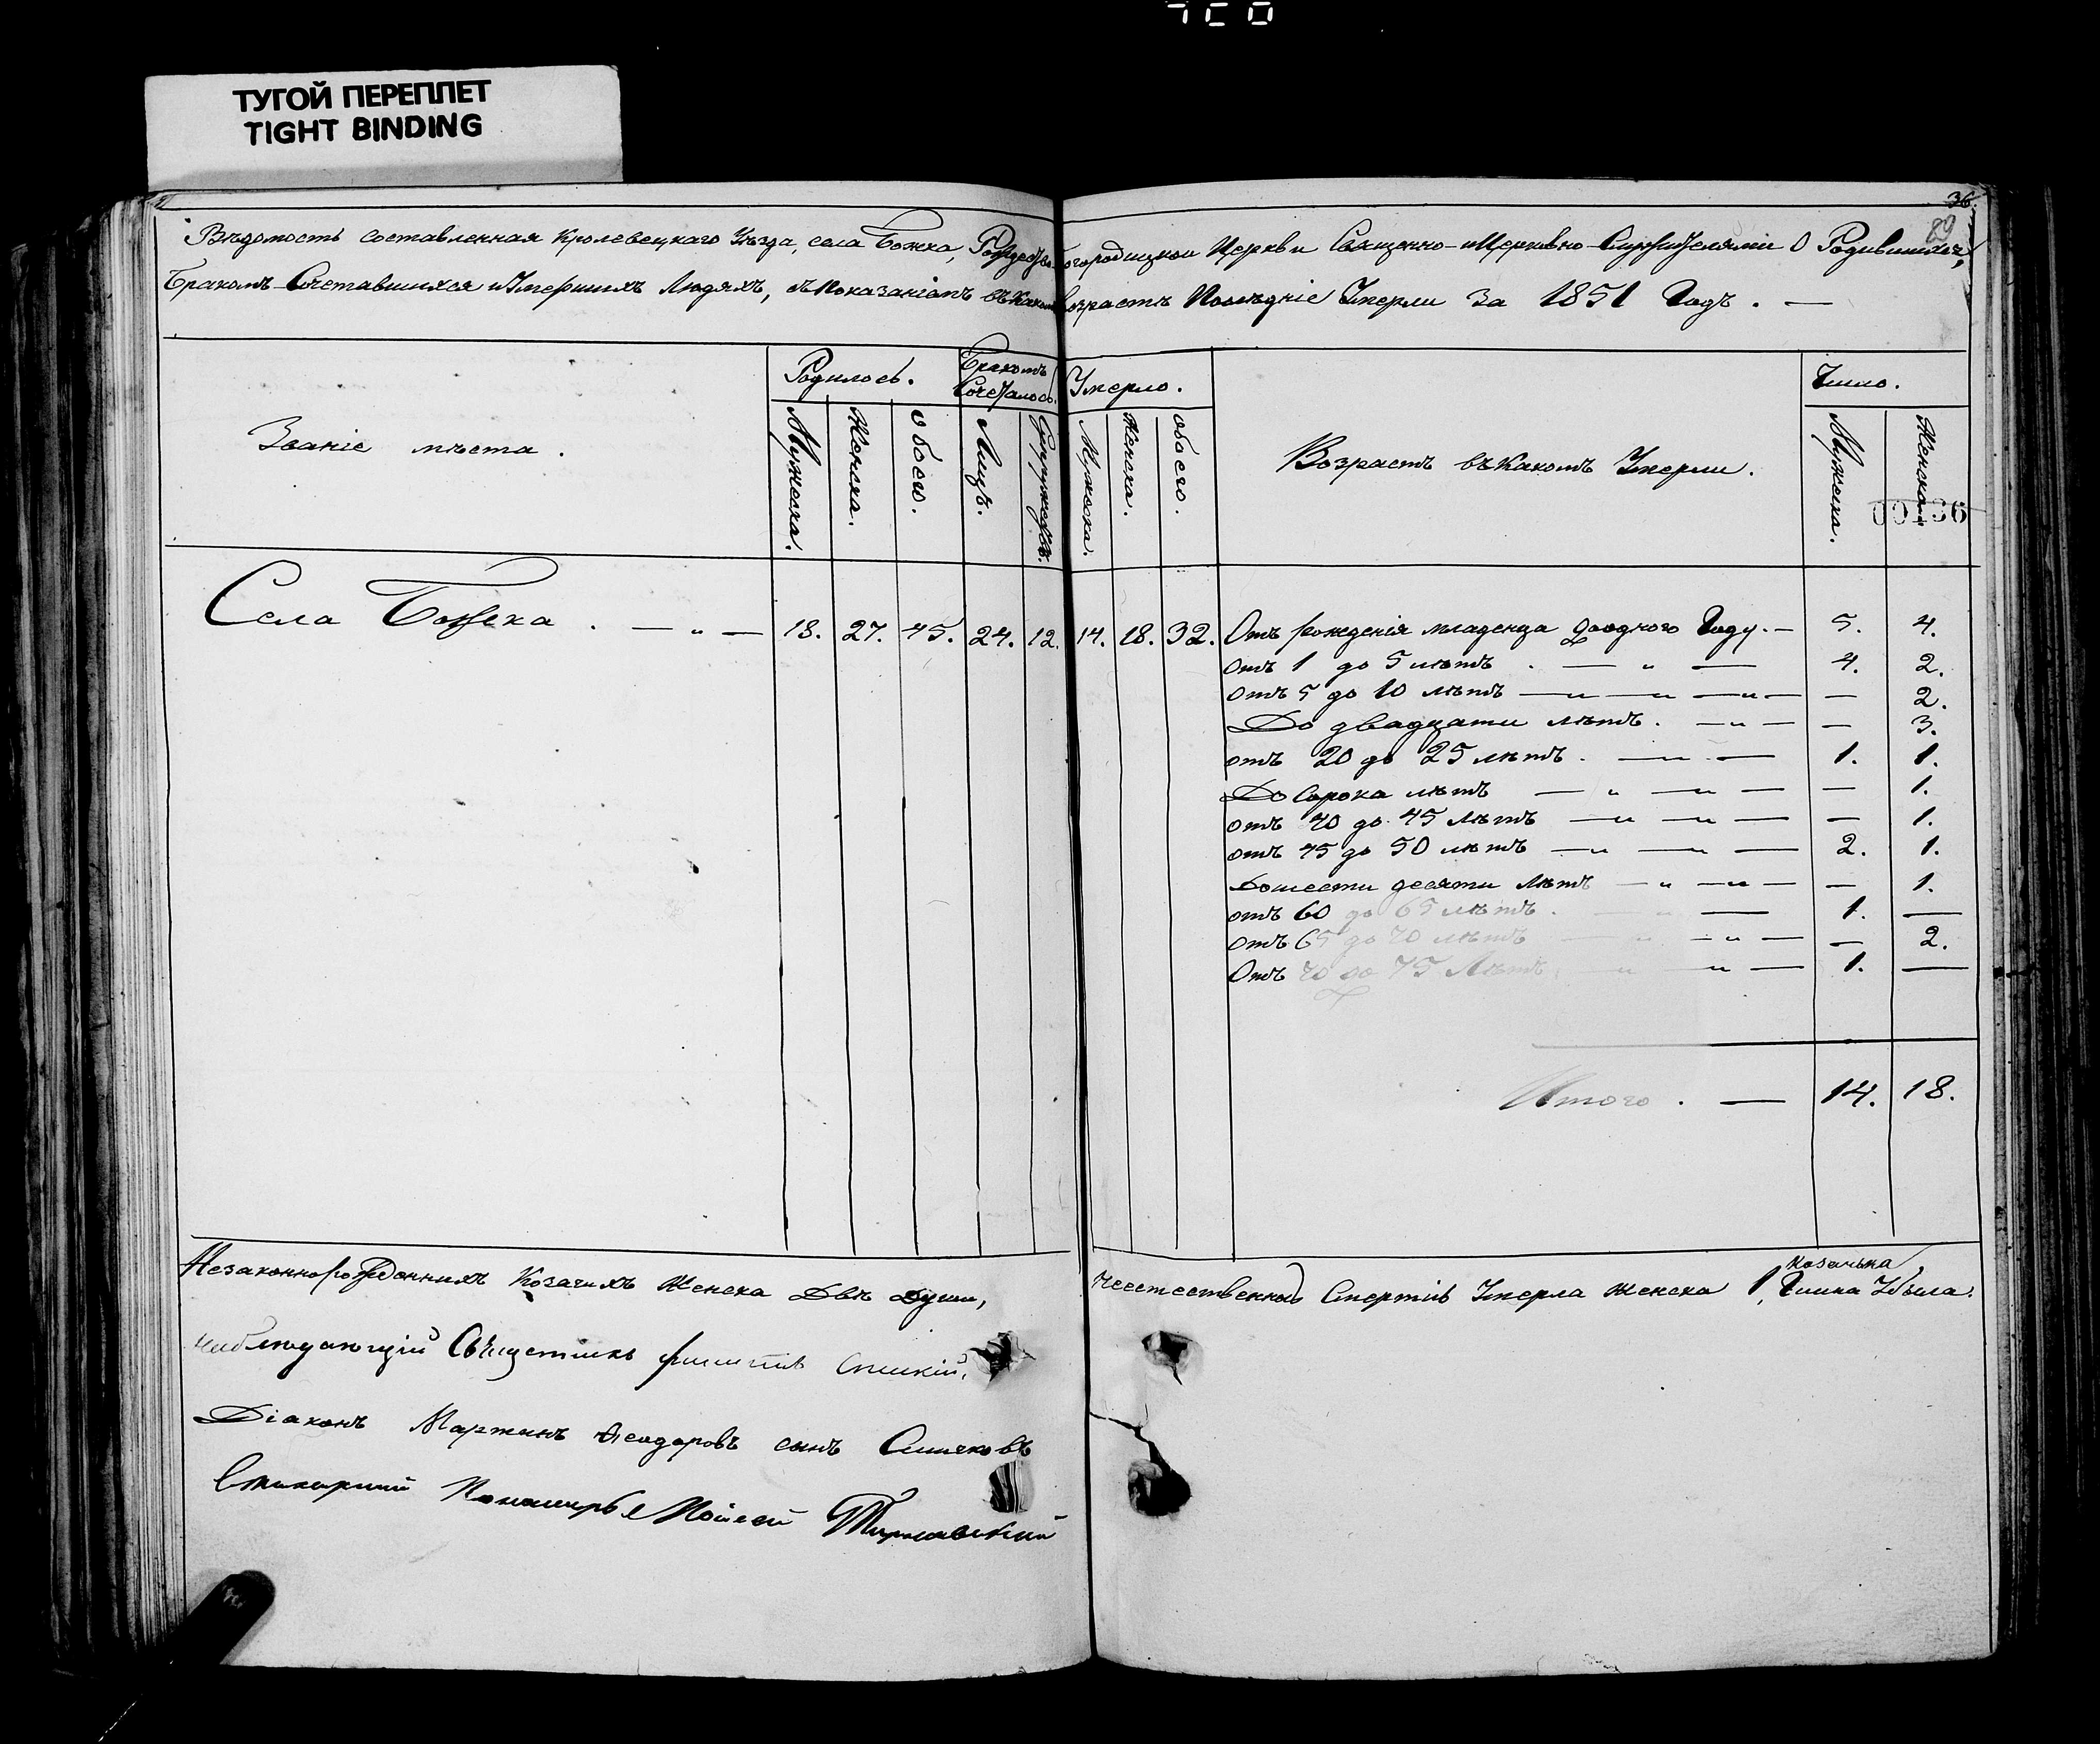 ТУГОЙ ПЕРЕПЛЕТ
TIGHT BINDING
36.
89
Вѣдомость составленная Кролевецкаго Уѣзда, села Божка, Рождество-Богородицкои Церкви Священно-и Церковно-Служителями О Родившихся,
Бракомъ-Сочетавшихся и Умершихъ Людяхъ, съ показаніемъ въ каком возрастѣ Последніе Умерли За 1851 Годъ. —
Званіе мѣста.
Родилось.
Мужеска.
Женска.
обоего.
Бракомъ Сочеталось.
Лицъ.
Супружествъ.
Умерло.
Мужеска.
Женска.
обоего.
Возрастъ въ какомъ Умерли.
Число.
Мужеска.
Женска.
00136
Села Божка . — „ — 18. 27. 45. 24. 12. 14. 18. 32. Отъ рожденія младенца до одного Году. — 5. 4.
отъ 1 до 5 лѣтъ . — „ — 4. 2.
отъ 5 до 10 лѣтъ — „ — „ — „ — — 2.
До двадцати лѣтъ. — „ — — 3.
отъ 20 до 25 лѣтъ . — „ — 1. 1.
До Сорока лѣтъ — „ — „ — — 1.
отъ 40 до 45 лѣтъ — „ — „ — — 1.
отъ 45 до 50 лѣтъ — „ — „ — 2. 1.
До шести десяти лѣтъ — „ — „ — — 1.
отъ 60 до 65 лѣтъ . — „ — 1. —
отъ 65 до 70 лѣтъ — „ — „ — — 2.
Отъ 70 до 75 Лѣтъ — „ — „ — 1. —
Итого . — 14. 18.
Незаконнорожденныхъ Козачихъ Женска Двѣ Души,
Неестественной Смертію Умерла женска 1, козачька
Наблюдающій Священникъ
Діаконъ Мартинъ Феодоровъ сынъ
Пономарь Мойсей